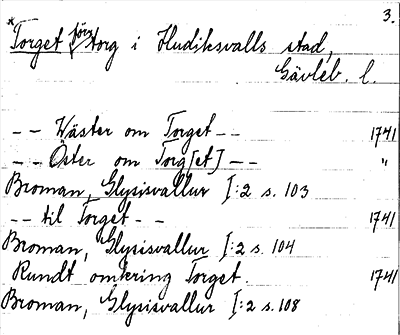 3.
*Torget förr torg i Hudiksvalls stad,
Gävleb. l.
-- Wäster om Torget -- 1741
-- Öster om Torg[et] -- "
Broman, Glysisvallur I:2 s. 103
-- til Torget -- 1741
Broman, Glysisvallur I:2 s. 104
Rundt omkring Torget. 1741
Broman, Glysisvallur I:2 s. 108